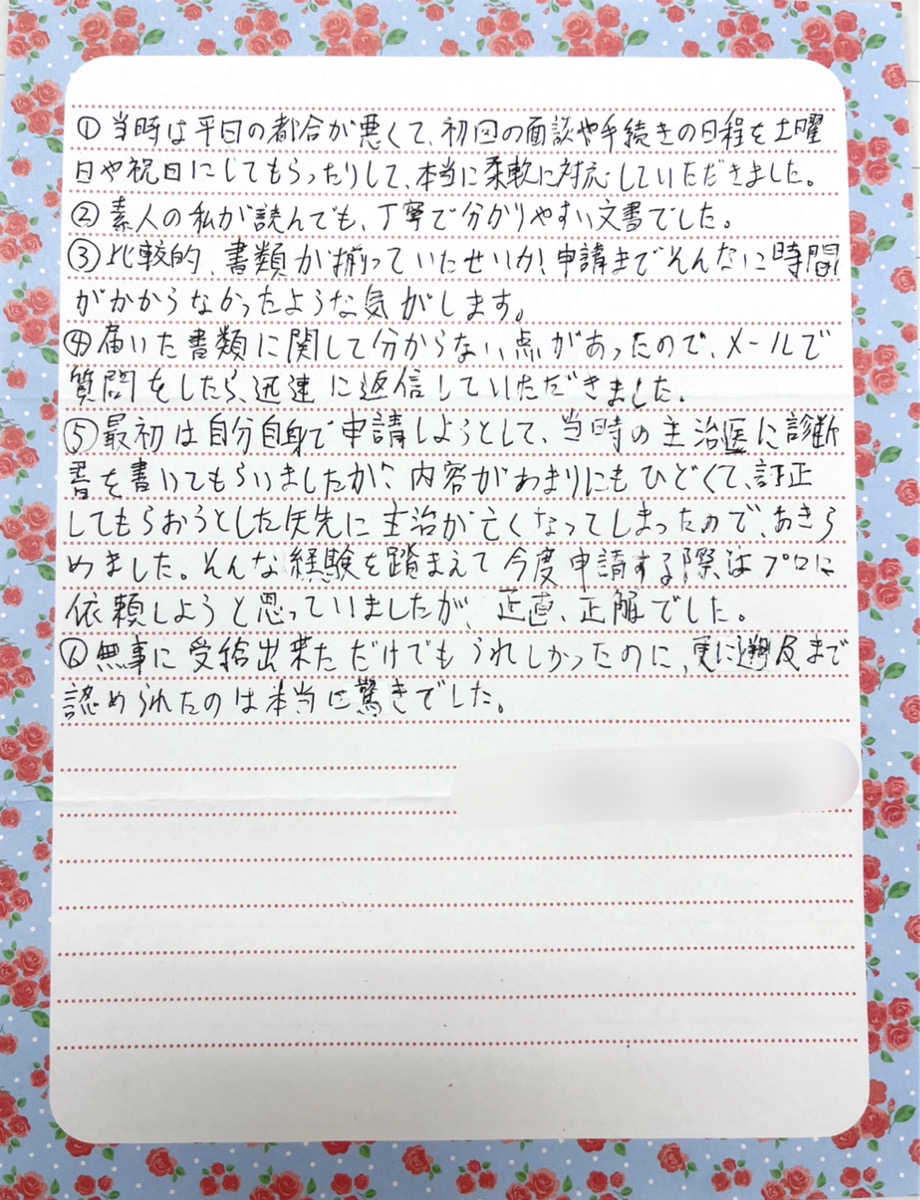 ①当時は平日の都合が悪くて、初回の面談や手続きの日程を土曜
日や祝日にしてもらったりして、本当に柔軟に対応していただきました。
②素人の私が読んでも、丁寧で分かりやすい文書でした。
③比較的、書類が揃っていたせいか、申請までそんなに時間
がかからなかったような気がします。
④届いた書類に関して分からない点があったので、メールで
質問をしたら、迅速に返信していただきました。
⑤最初は自分自身で申請しようとして、当時の主治医に診断
書を書いてもらいましたが、内容があまりにもひどくて、訂正
してもらおうとした矢先に主治が亡くなってしまったので、あきら
めました。そんな経験を踏まえて今度申請する際はプロに
依頼しようと思っていましたが、正直、正解でした。
⑥無事に受給出来ただけでもうれしかったのに、更に遡及まで
認められたのは本当に驚きでした。